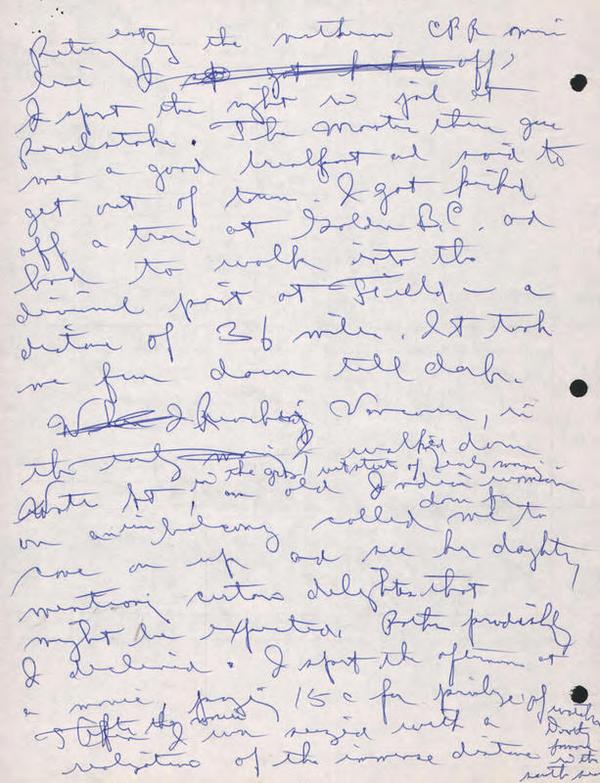 Return the northern CPR main
line I got kicked off,
I spent the night in jail at
Revelstoke. The Mountie there gave
me a good breakfast and said to
get out of town. I got kicked
off a train at Golden B.C. and
had to walk into the
divisional point at Field — a
distance of 36 miles. It took
me from dawn till dark.
I Reaching Vancouver, in
the early morning I walked down
in the grey of early morning
an old Indian woman
on an balcony called me to
come on up and see her daughter,
mentioning certain delights that
might be expected. Rather prudishly
I declined. I spent the afternoon at
a movie, paying 15c for privilege of
After the movie
I was seized with a
realization of the immense distance
south sea